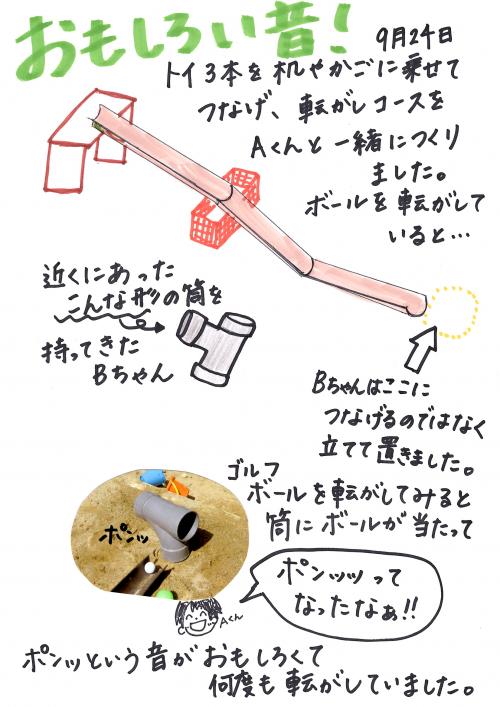 おもしろい音!
9月24日
トイ3本を机やかごに乗せて
つなげ、転がしコースを
Aくんと一緒につくり
ました。
ボールを転がして
いると…
近くにあった
こんな形の筒を
持ってきた
Bちゃん
Bちゃんはここに
つなげるのではなく
立てて置きました。
ゴルフ
ボールを転がしてみると
筒にボールが当たって
ポンッ
ポンッッって
なったなぁ!!
Aくん
ポンッという音がおもしろくて
何度も転がしていました。